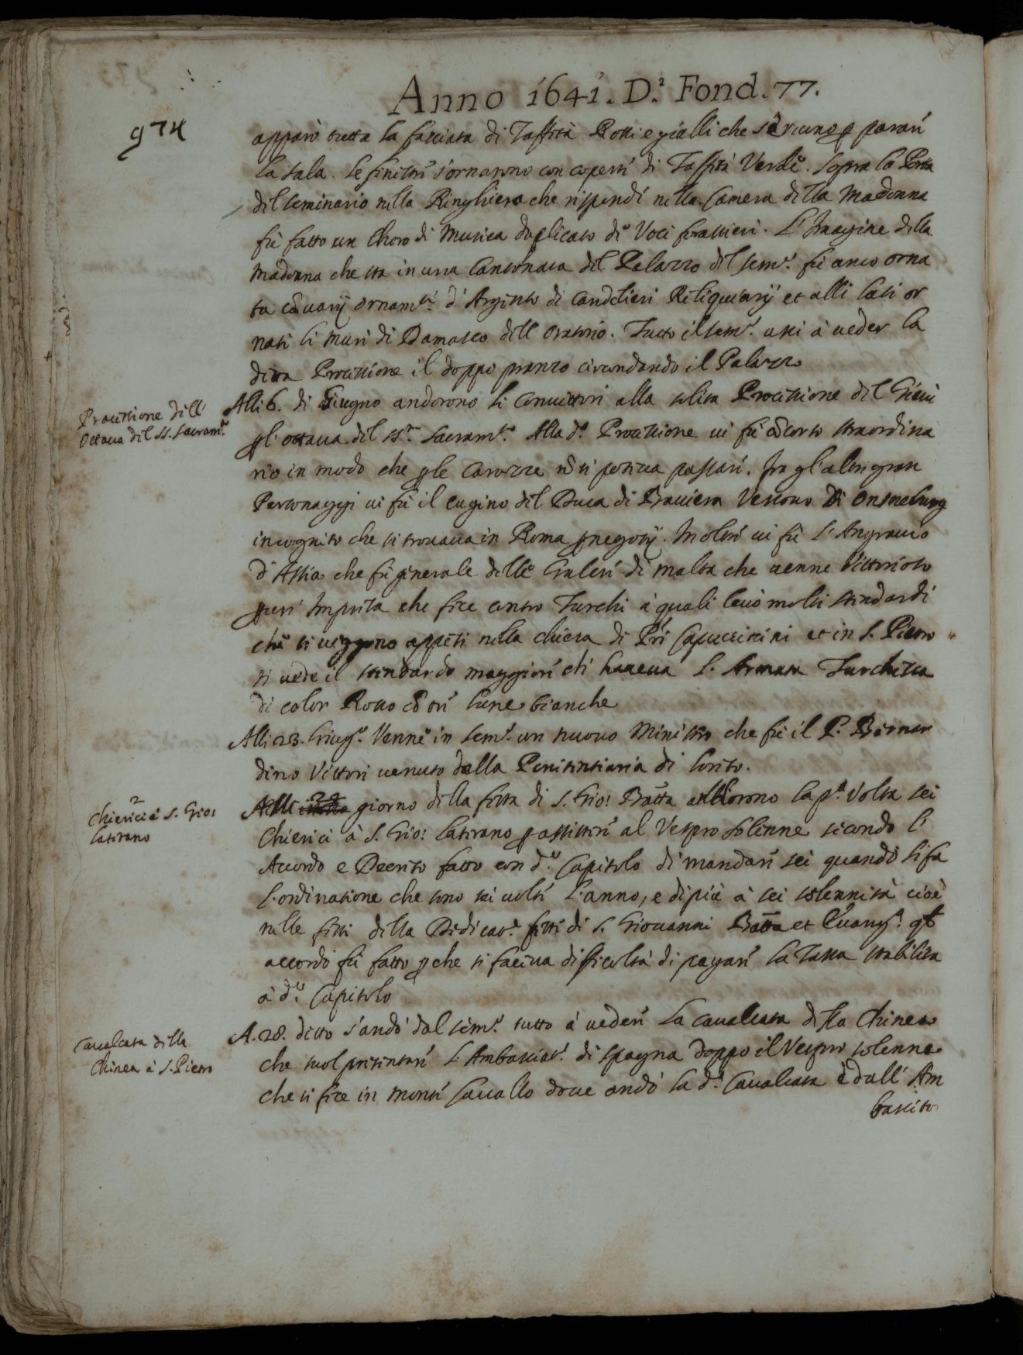 Anno 1641. D.ª Fond. 77.
974
apparò tutta la facciata di Taffità Rossi e gialli che servono p parar
la sala. Le finestre s'ornarono con coperte di Taffità Verde. Sopra la Porta
del Seminario nella Ringhiera che risponde nella Camera della Madonna
fù fatto un Choro di Musica duplicato di Voci forastieri. L'Imagine della
Madonna che sta in una Cantonata del Palazzo del Sem.º fù anco orna
ta cõ varij ornam.ti d'Argento di Candelieri Reliquiarij et alli lati or
nati li muri di Damasco dell'Oratorio. Tutto il sem.º uscì à veder la
detta Processione il doppo pranzo circondando il Palazzo
Processione dell'
Ottava del SS. Sacram.to
Alli 6. di Giugno andorono li Convittori alla solita Processione del Giesù
p l'ottava del SS.º Sacram.to. Alla d.ª Processione vi fù cõcorso straordina
rio in modo che p le Carozze nõ si poteva passare. fra gl'altri gran
Personaggi vi fù il cugino del Duca di Baviera Vescovo di Osnaburg
incognito che si trovava in Roma p negotij. Inoltre vi fù L'Angravio
d'Assia che fù generale delle Galere di Malta che venne Vittorioso
Impresa che fece contro Turchi à quali levò molti stendardi
che si veggono appesi nella chiesa di Pri Capuccini et in S. Pietro
si vede il stendardo maggiore che haveva l'Armata Turchesca
di color Rosso cõ tre lune bianche
Alli 23. Giug.º Venne in Sem.º un nuovo Ministro che fù il P. Bernar
dino Vittori venuto dalla Penitentiaria di Loreto.
Chierici à S. Gio:
Laterano
Alli 24 giorno della festa di S. Gio: Batta andorono la p.ª volta sei
Chierici à S. Gio: Laterano p assistere al Vespro solenne secondo l'
Accordo e Decreto fatto con d.º Capitolo di mandare sei quando si fa
l'ordinatione che sono sei volte l'anno, e di più à sei solennità cioè
nelle feste della Dedicat.e feste di S. Giovanni Batta et Evang.ta qst
accordo fù fatto p che si faceva difficoltà di pagare la Tassa stabilita
à d.º Capitolo
Cavalcata della
Chinea à S. Pietro
A. 28. detto s'andò dal sem.º tutto à vedere la cavalcata della Chinea
che suol presentare l'Ambasciat.re di Spagna doppo il Vespro solenne
che si fece in monte Cavallo dove andò la d.ª Cavalcata e dall'Am
basciato